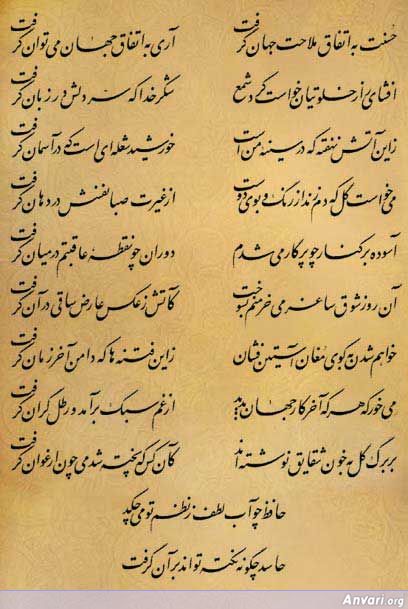 حسنت به اتفاق ملاحت جهان گرفت آری به اتفاق جهان می توان گرفت
افشای راز خلوتیان خواست کرد شمع شکر خدا که سر دلش در زبان گرفت
زاین آتش نهفته که در سینه من است خورشید شعله ای است که در آسمان گرفت
می خواست گل که دم زند از رنگ و بوی دوست از غیرت صبا نفسش در دهان گرفت
آسوده بر کنار چو پرگار می شدم دوران چو نقطه عاقبتم در میان گرفت
آن روز شوق ساغر می خرمنم بسوخت کآتش ز عکس عارض ساقی در آن گرفت
خواهم شدن به کوی مغان آستین فشان زاین فتنه ها که دامن آخر زمان گرفت
می خور که هر که آخر کار جهان بدید از غم سبک برآمد و رطل گران گرفت
بر برگ گل به خون شقایق نوشته اند کآن کس که پخته شد می چون ارغوان گرفت
حافظ چو آب لطف ز نظم تو می چکد
حاسد چگونه نکته تواند بر آن گرفت
Anvari.org